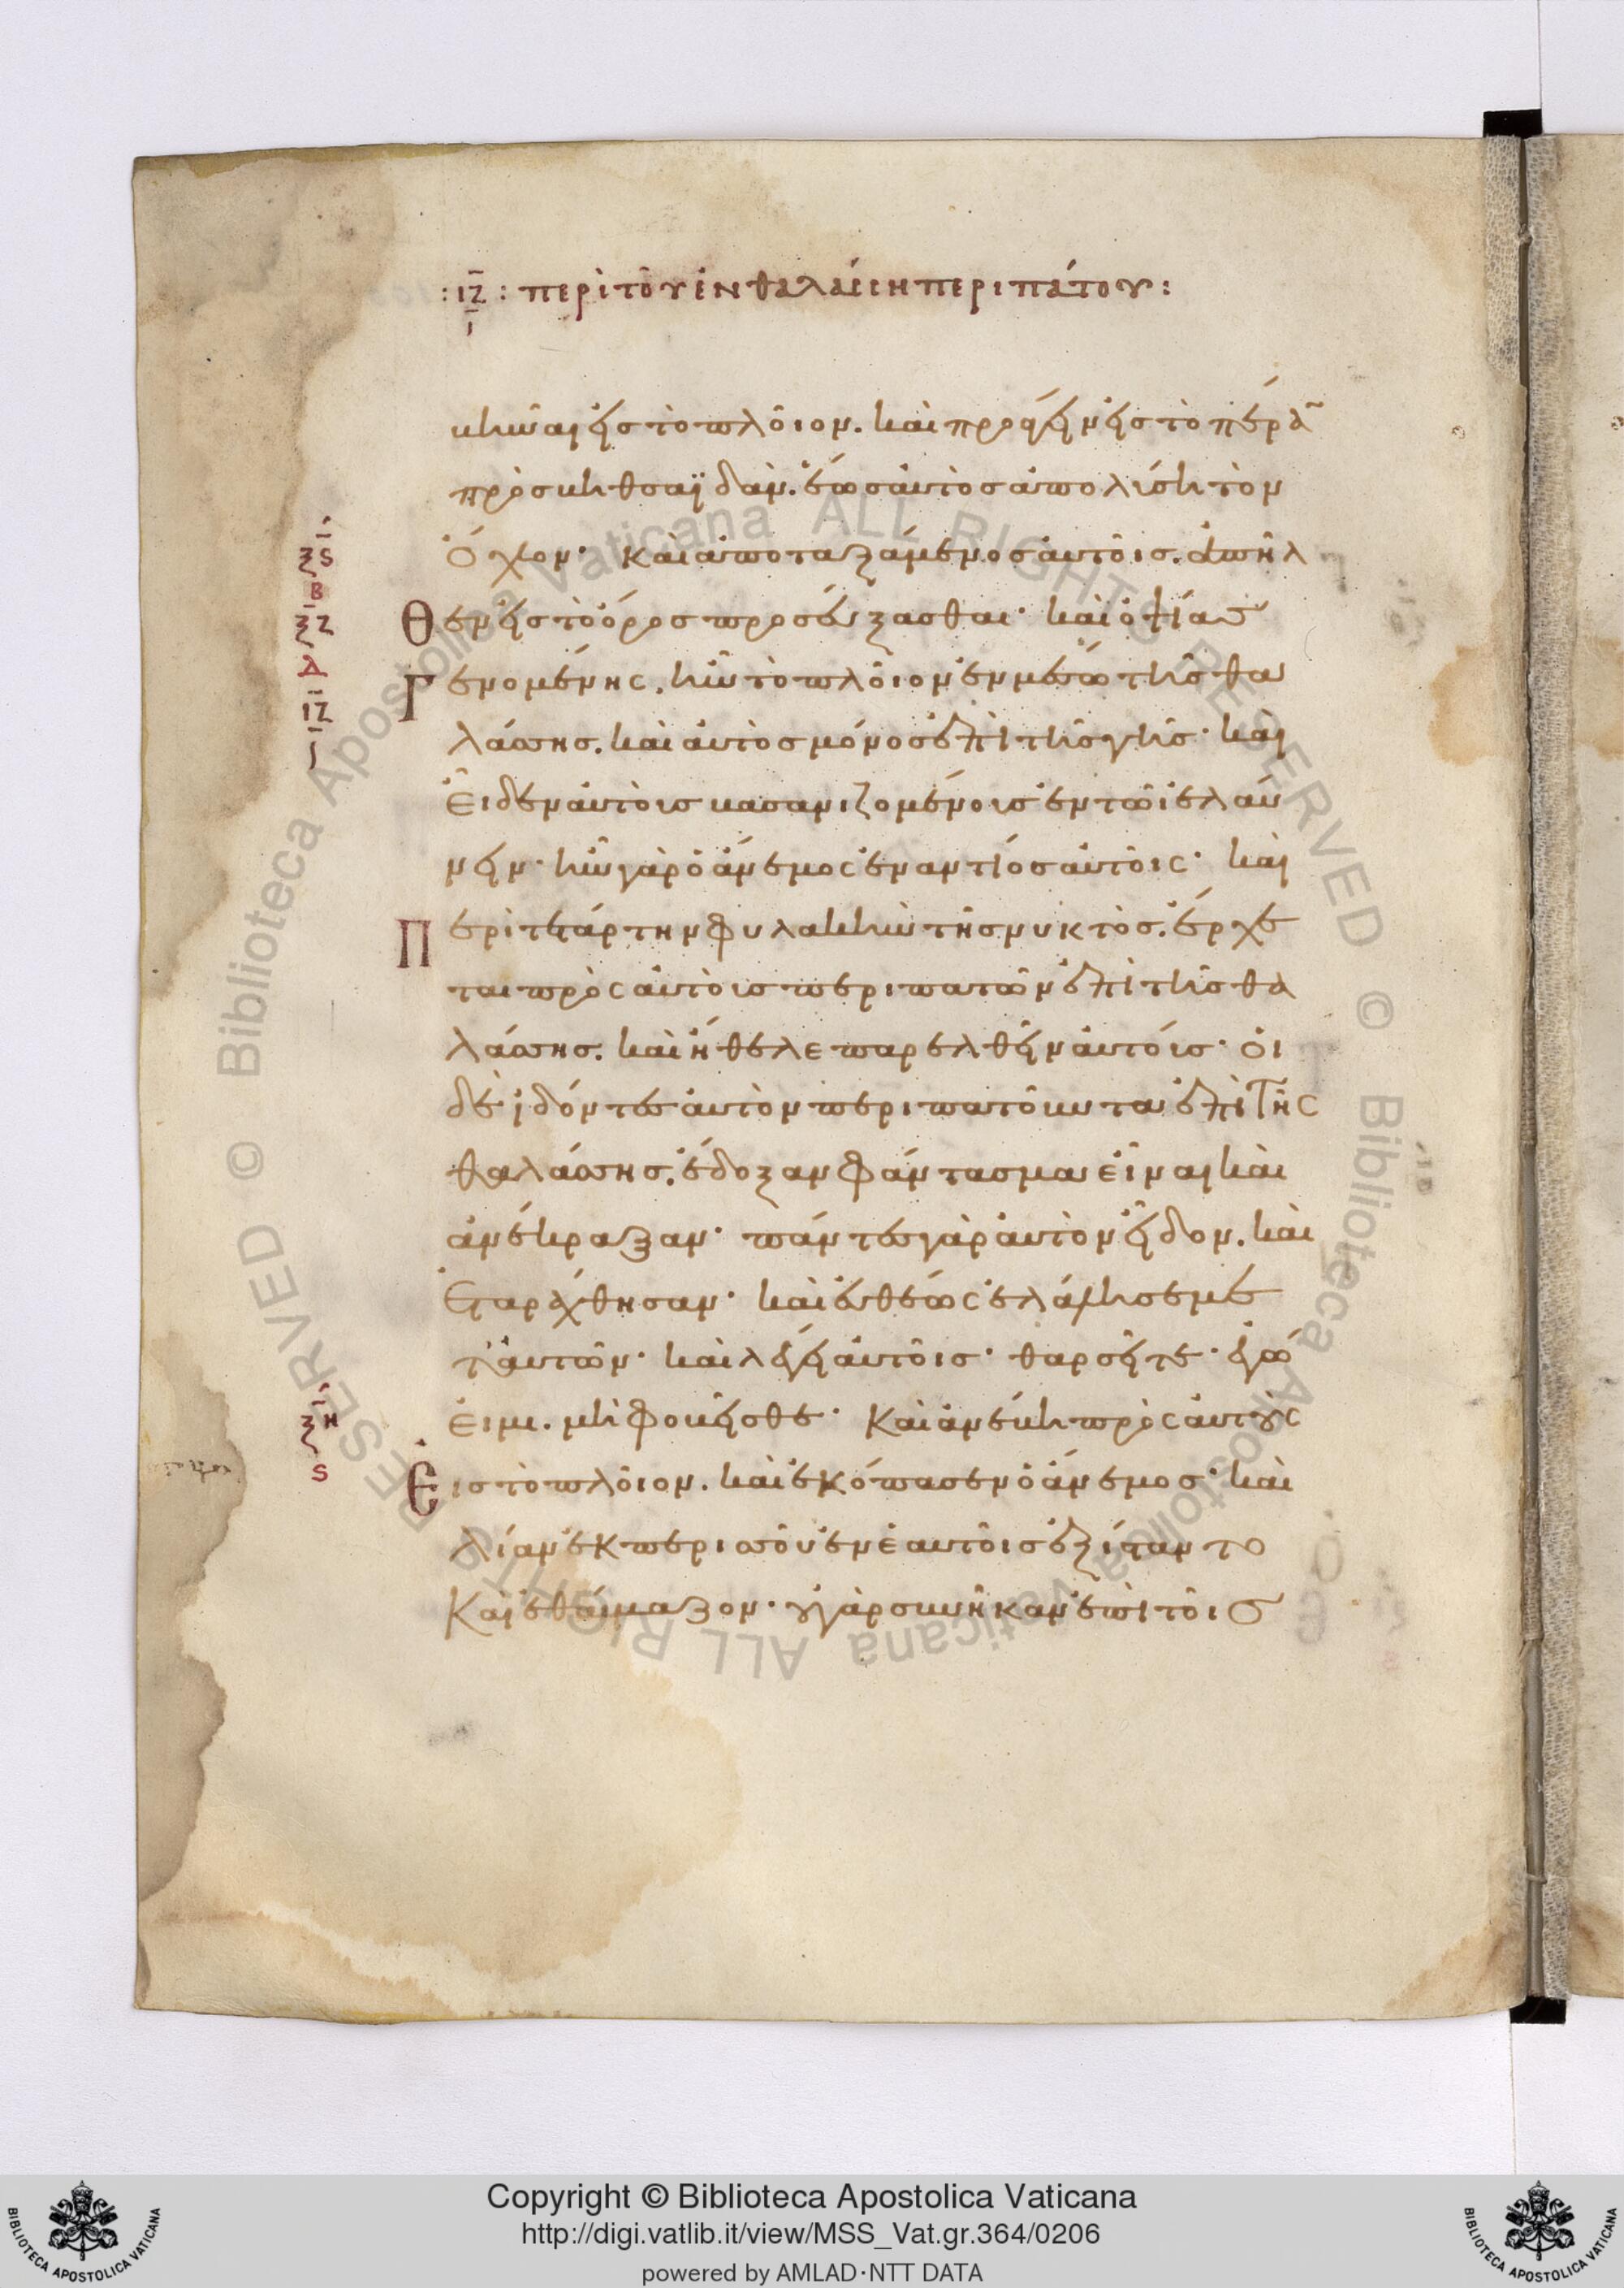 : ιζ : περὶ τοῦ ἐν θαλάσσῃ περιπάτου :
ι
βῆναι εἰς τὸ πλοῖον. καὶ προάγειν εἰς τὸ πέρᾶ
πρὸς βηθσαϊδάν. ἕως αὐτὸς ἀπολύσῃ τὸν
ὄχλον· Καὶ ἀποταξάμενος αὐτοῖς. ἀπῆλ
Θεν εἰς τὸ ὄρος προσεύξασθαι· καὶ ὀψίας
Γενομένης. ἦν τὸ πλοῖον ἐν μέσω τῆς θα
λάσσης. καὶ αὐτὸς μόνος ἐπὶ τῆς γῆς· καὶ
εἶδεν αὐτοὺς βασανιζομένους ἐν τῶ ἐλαύ
νειν· ἦν γὰρ ὁ ἄνεμος ἐναντίος αὐτοῖς· καὶ
Περὶ τετάρτην φυλακὴν τῆς νυκτὸς. ἔρχε
ται πρὸς αὐτοὺς περιπατῶν ἐπὶ τῆς θα
λάσσης. καὶ ἤθελε παρελθεῖν αὐτούς· οἱ
δὲ ἰδόντες αὐτὸν περιπατοῦντα ἐπὶ τῆς
θαλάσσης. ἔδοξαν φάντασμα εἶναι καὶ
ἀνέκραξαν· πάντες γὰρ αὐτὸν εἶδον. καὶ
ἐταράχθησαν· καὶ εὐθέως ἐλάλησε με
τ' αὐτῶν· καὶ λέγει αὐτοῖς· θαρσεῖτε· ἐγώ
εἰμι. μὴ φοβεῖσθε· Καὶ ἀνέβη πρὸς αὐτοὺς
Εἰς τὸ πλοῖον. καὶ ἐκόπασεν ὁ ἄνεμος· καὶ
λίαν ἐκ περισσοῦ ἐν ἑαυτοῖς ἐξίσταντο
Καὶ ἐθαύμαζον· οὐ γὰρ συνῆκαν ἐπὶ τοῖς
ξς
β
ξζ
δ
ιζ
ξη
ς
Copyright © Biblioteca Apostolica Vaticana
http://digi.vatlib.it/view/MSS_Vat.gr.364/0206
powered by AMLAD·NTT DATA
BIBLIOTECA APOSTOLICA VATICANA
BIBLIOTECA APOSTOLICA VATICANA
© Biblioteca Apostolica Vaticana ALL RIGHTS RESERVED
© Biblioteca Apostolica Vaticana ALL RIGHTS RESERVED